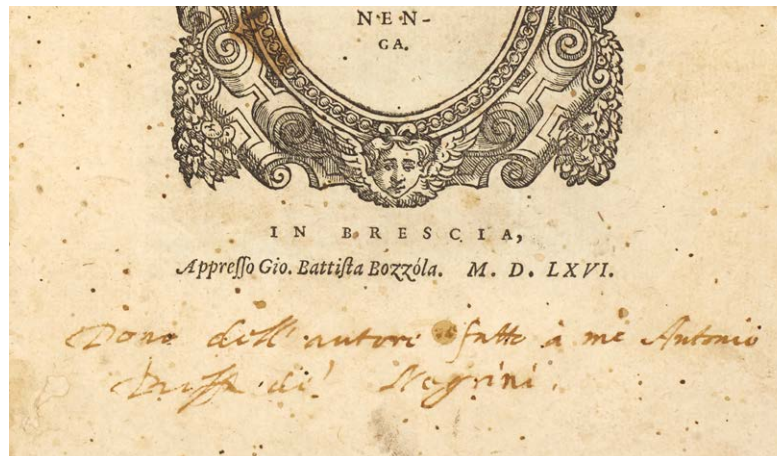 N·E·N-
GA.
IN BRESCIA,
Appreſſo Gio. Battiſta Bozzóla. M. D. LXVI.
Dono dell'autore fatto à me Antonio
Beffa de' Negrini.